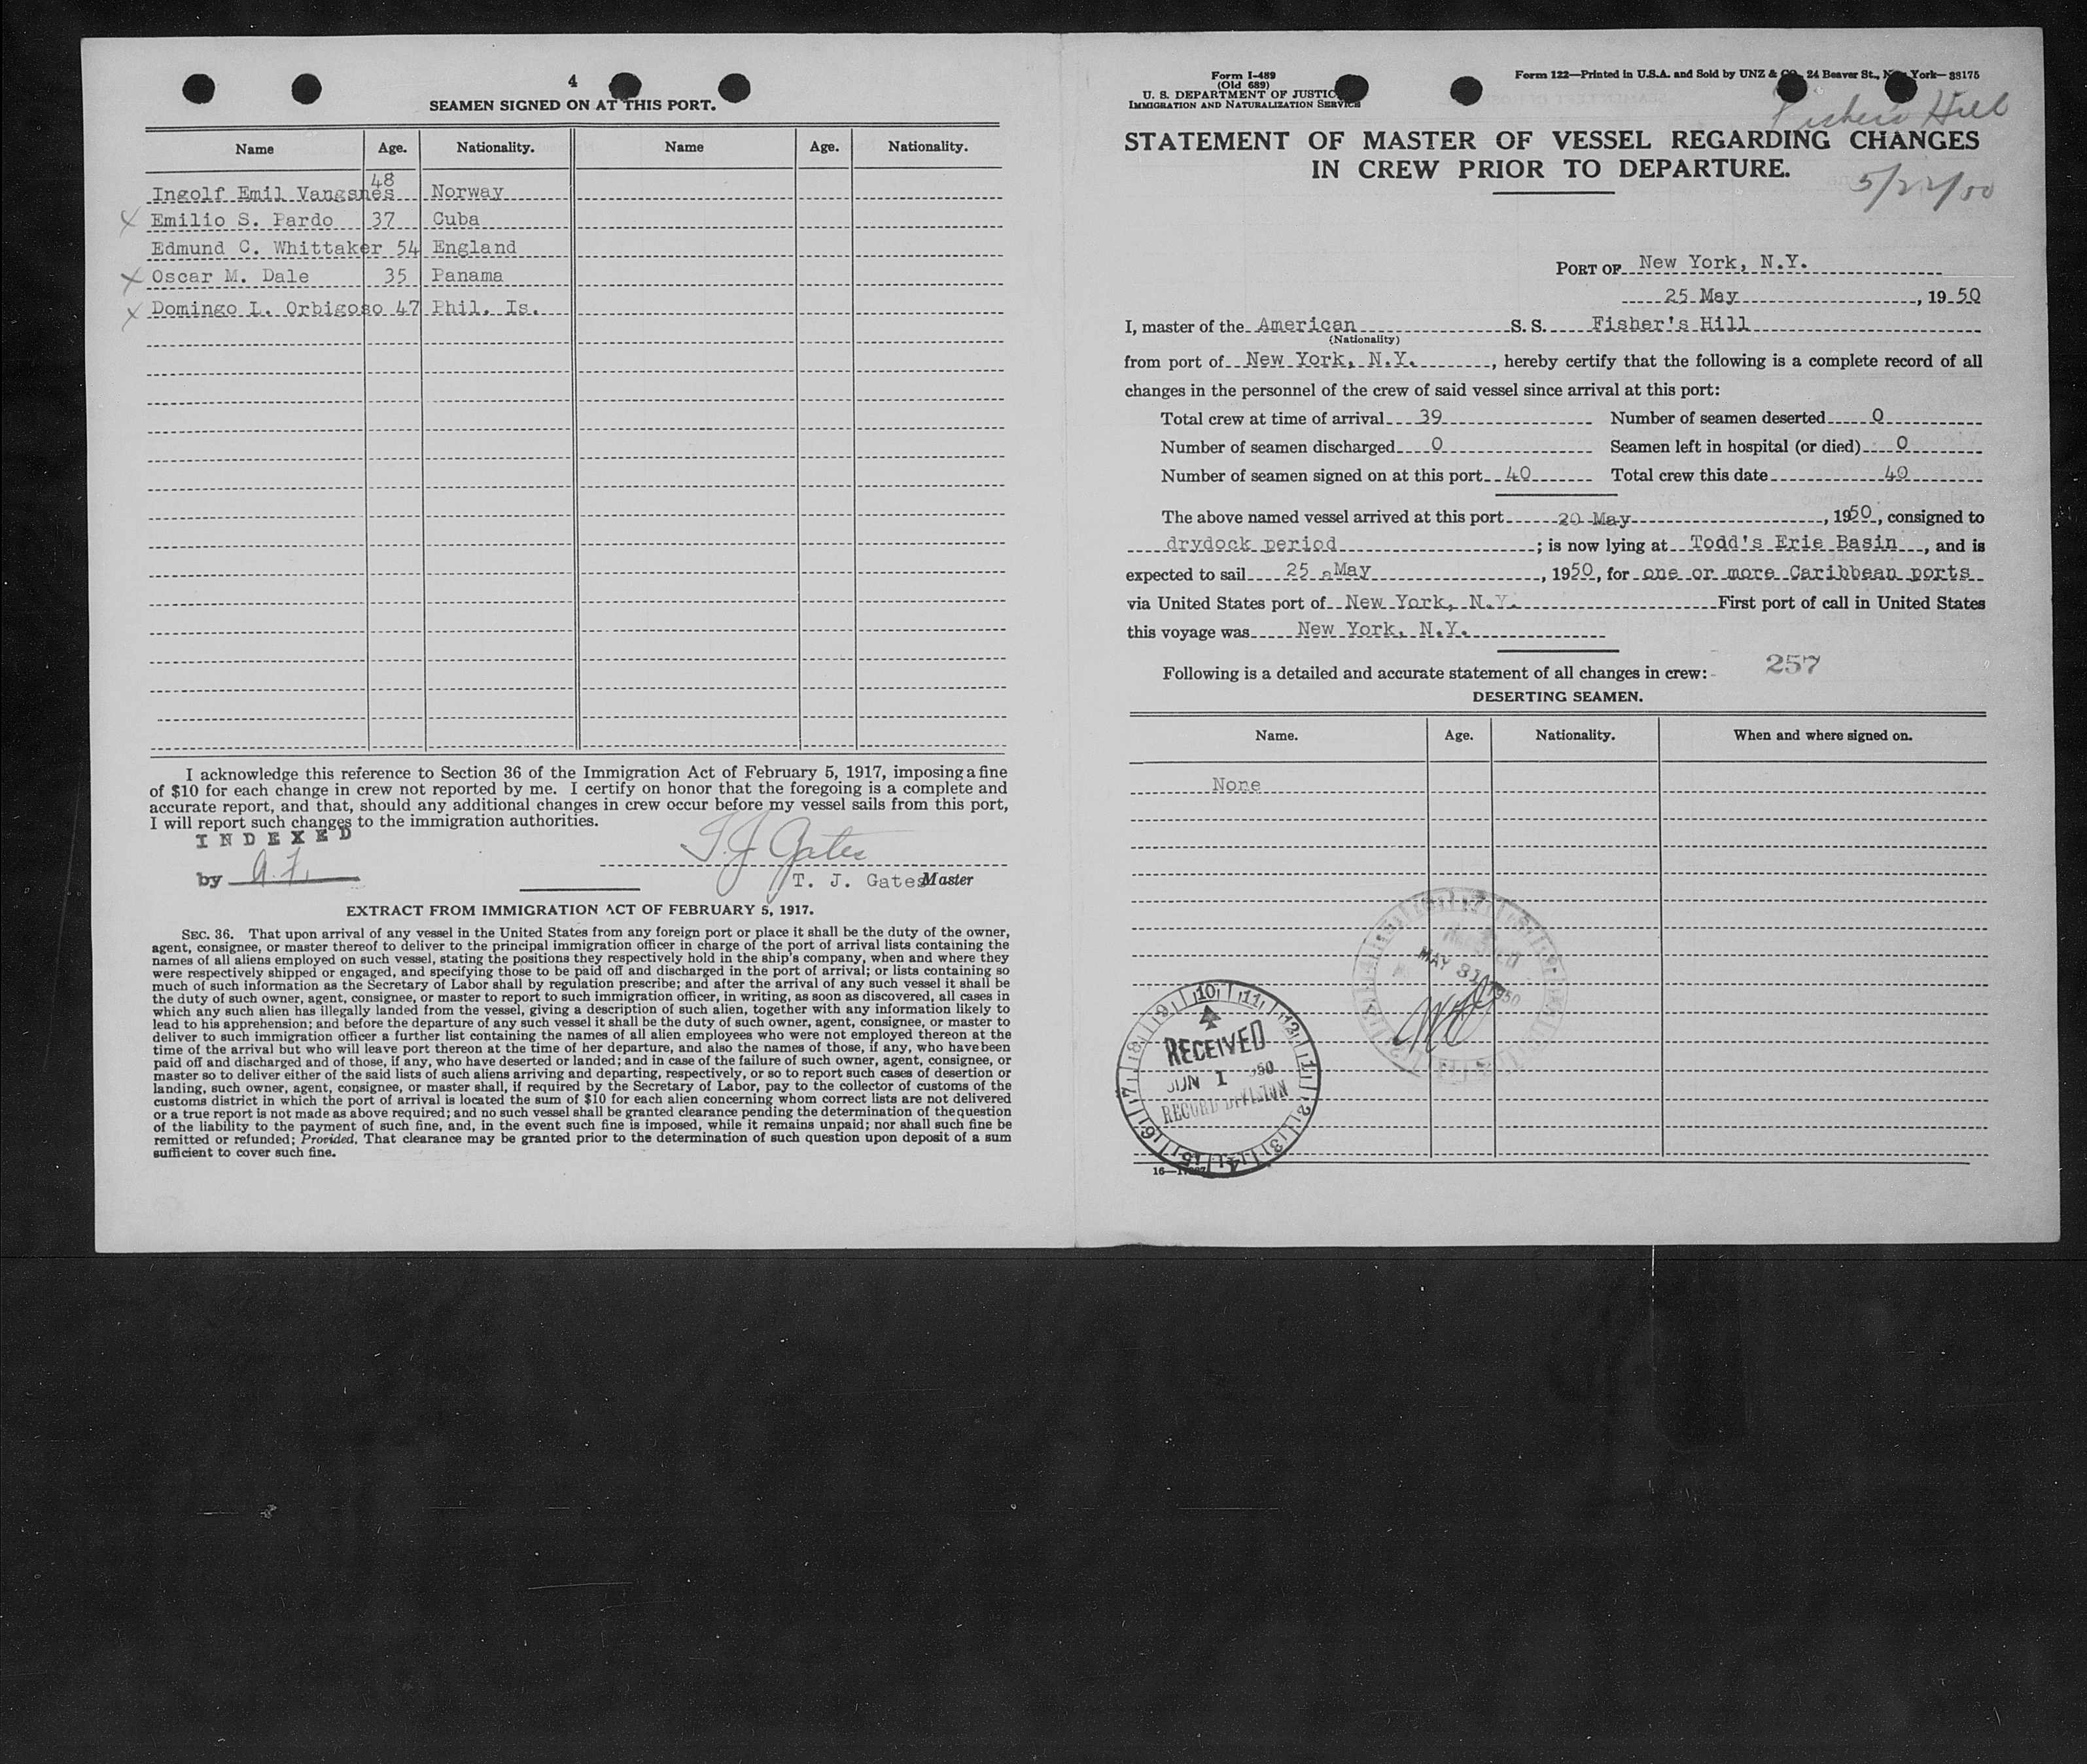 4
SEAMEN SIGNED ON AT THIS PORT.
Name Age. Nationality. Name Age. Nationality.
Ingolf Emil Vangsnes 48 Norway
X Emilio S. Pardo 37 Cuba
Edmund C. Whittaker 54 England
X Oscar M. Dale 35 Panama
X Domingo L. Orbigoso 47 Phil. Is.
I acknowledge this reference to Section 36 of the Immigration Act of February 5, 1917, imposing a fine
of $10 for each change in crew not reported by me. I certify on honor that the foregoing is a complete and
accurate report, and that, should any additional changes in crew occur before my vessel sails from this port,
I will report such changes to the immigration authorities.
INDEXED
by A.F.
T. J. Gates
T. J. Gates Master
EXTRACT FROM IMMIGRATION ACT OF FEBRUARY 5, 1917.
SEC. 36. That upon arrival of any vessel in the United States from any foreign port or place it shall be the duty of the owner,
agent, consignee, or master thereof to deliver to the principal immigration officer in charge of the port of arrival lists containing the
names of all aliens employed on such vessel, stating the positions they respectively hold in the ship's company, when and where they
were respectively shipped or engaged, and specifying those to be paid off and discharged in the port of arrival; or lists containing so
much of such information as the Secretary of Labor shall by regulation prescribe; and after the arrival of any such vessel it shall be
the duty of such owner, agent, consignee, or master to report to such immigration officer, in writing, as soon as discovered, all cases in
which any such alien has illegally landed from the vessel, giving a description of such alien, together with any information likely to
lead to his apprehension; and before the departure of any such vessel it shall be the duty of such owner, agent, consignee, or master to
deliver to such immigration officer a further list containing the names of all alien employees who were not employed thereon at the
time of the arrival but who will leave port thereon at the time of her departure, and also the names of those, if any, who have been
paid off and discharged and of those, if any, who have deserted or landed; and in case of the failure of such owner, agent, consignee, or
master so to deliver either of the said lists of such aliens arriving and departing, respectively, or so to report such cases of desertion or
landing, such owner, agent, consignee, or master shall, if required by the Secretary of Labor, pay to the collector of customs of the
customs district in which the port of arrival is located the sum of $10 for each alien concerning whom correct lists are not delivered
or a true report is not made as above required; and no such vessel shall be granted clearance pending the determination of the question
of the liability to the payment of such fine, and, in the event such fine is imposed, while it remains unpaid; nor shall such fine be
remitted or refunded; Provided, That clearance may be granted prior to the determination of such question upon deposit of a sum
sufficient to cover such fine.
Form I-489
(Old 689)
U. S. DEPARTMENT OF JUSTICE
IMMIGRATION AND NATURALIZATION SERVICE
Form 122—Printed in U.S.A. and Sold by UNZ & CO., 24 Beaver St., New York—33175
Fishers Hill
STATEMENT OF MASTER OF VESSEL REGARDING CHANGES
IN CREW PRIOR TO DEPARTURE.
5/22/50
PORT OF New York, N.Y.
25 May, 1950
I, master of the American S. S. Fisher's Hill
(Nationality)
from port of New York, N.Y., hereby certify that the following is a complete record of all
changes in the personnel of the crew of said vessel since arrival at this port:
Total crew at time of arrival 39 Number of seamen deserted 0
Number of seamen discharged 0 Seamen left in hospital (or died) 0
Number of seamen signed on at this port 40 Total crew this date 40
The above named vessel arrived at this port 20 May, 1950, consigned to
drydock period; is now lying at Todd's Erie Basin, and is
expected to sail 25 May, 1950, for one or more Caribbean ports
via United States port of New York, N.Y. First port of call in United States
this voyage was New York, N.Y.
Following is a detailed and accurate statement of all changes in crew:
257
DESERTING SEAMEN.
Name. Age. Nationality. When and where signed on.
None
MAY 31 1950
RECEIVED
JUN 1 1950
RECORD DIVISION